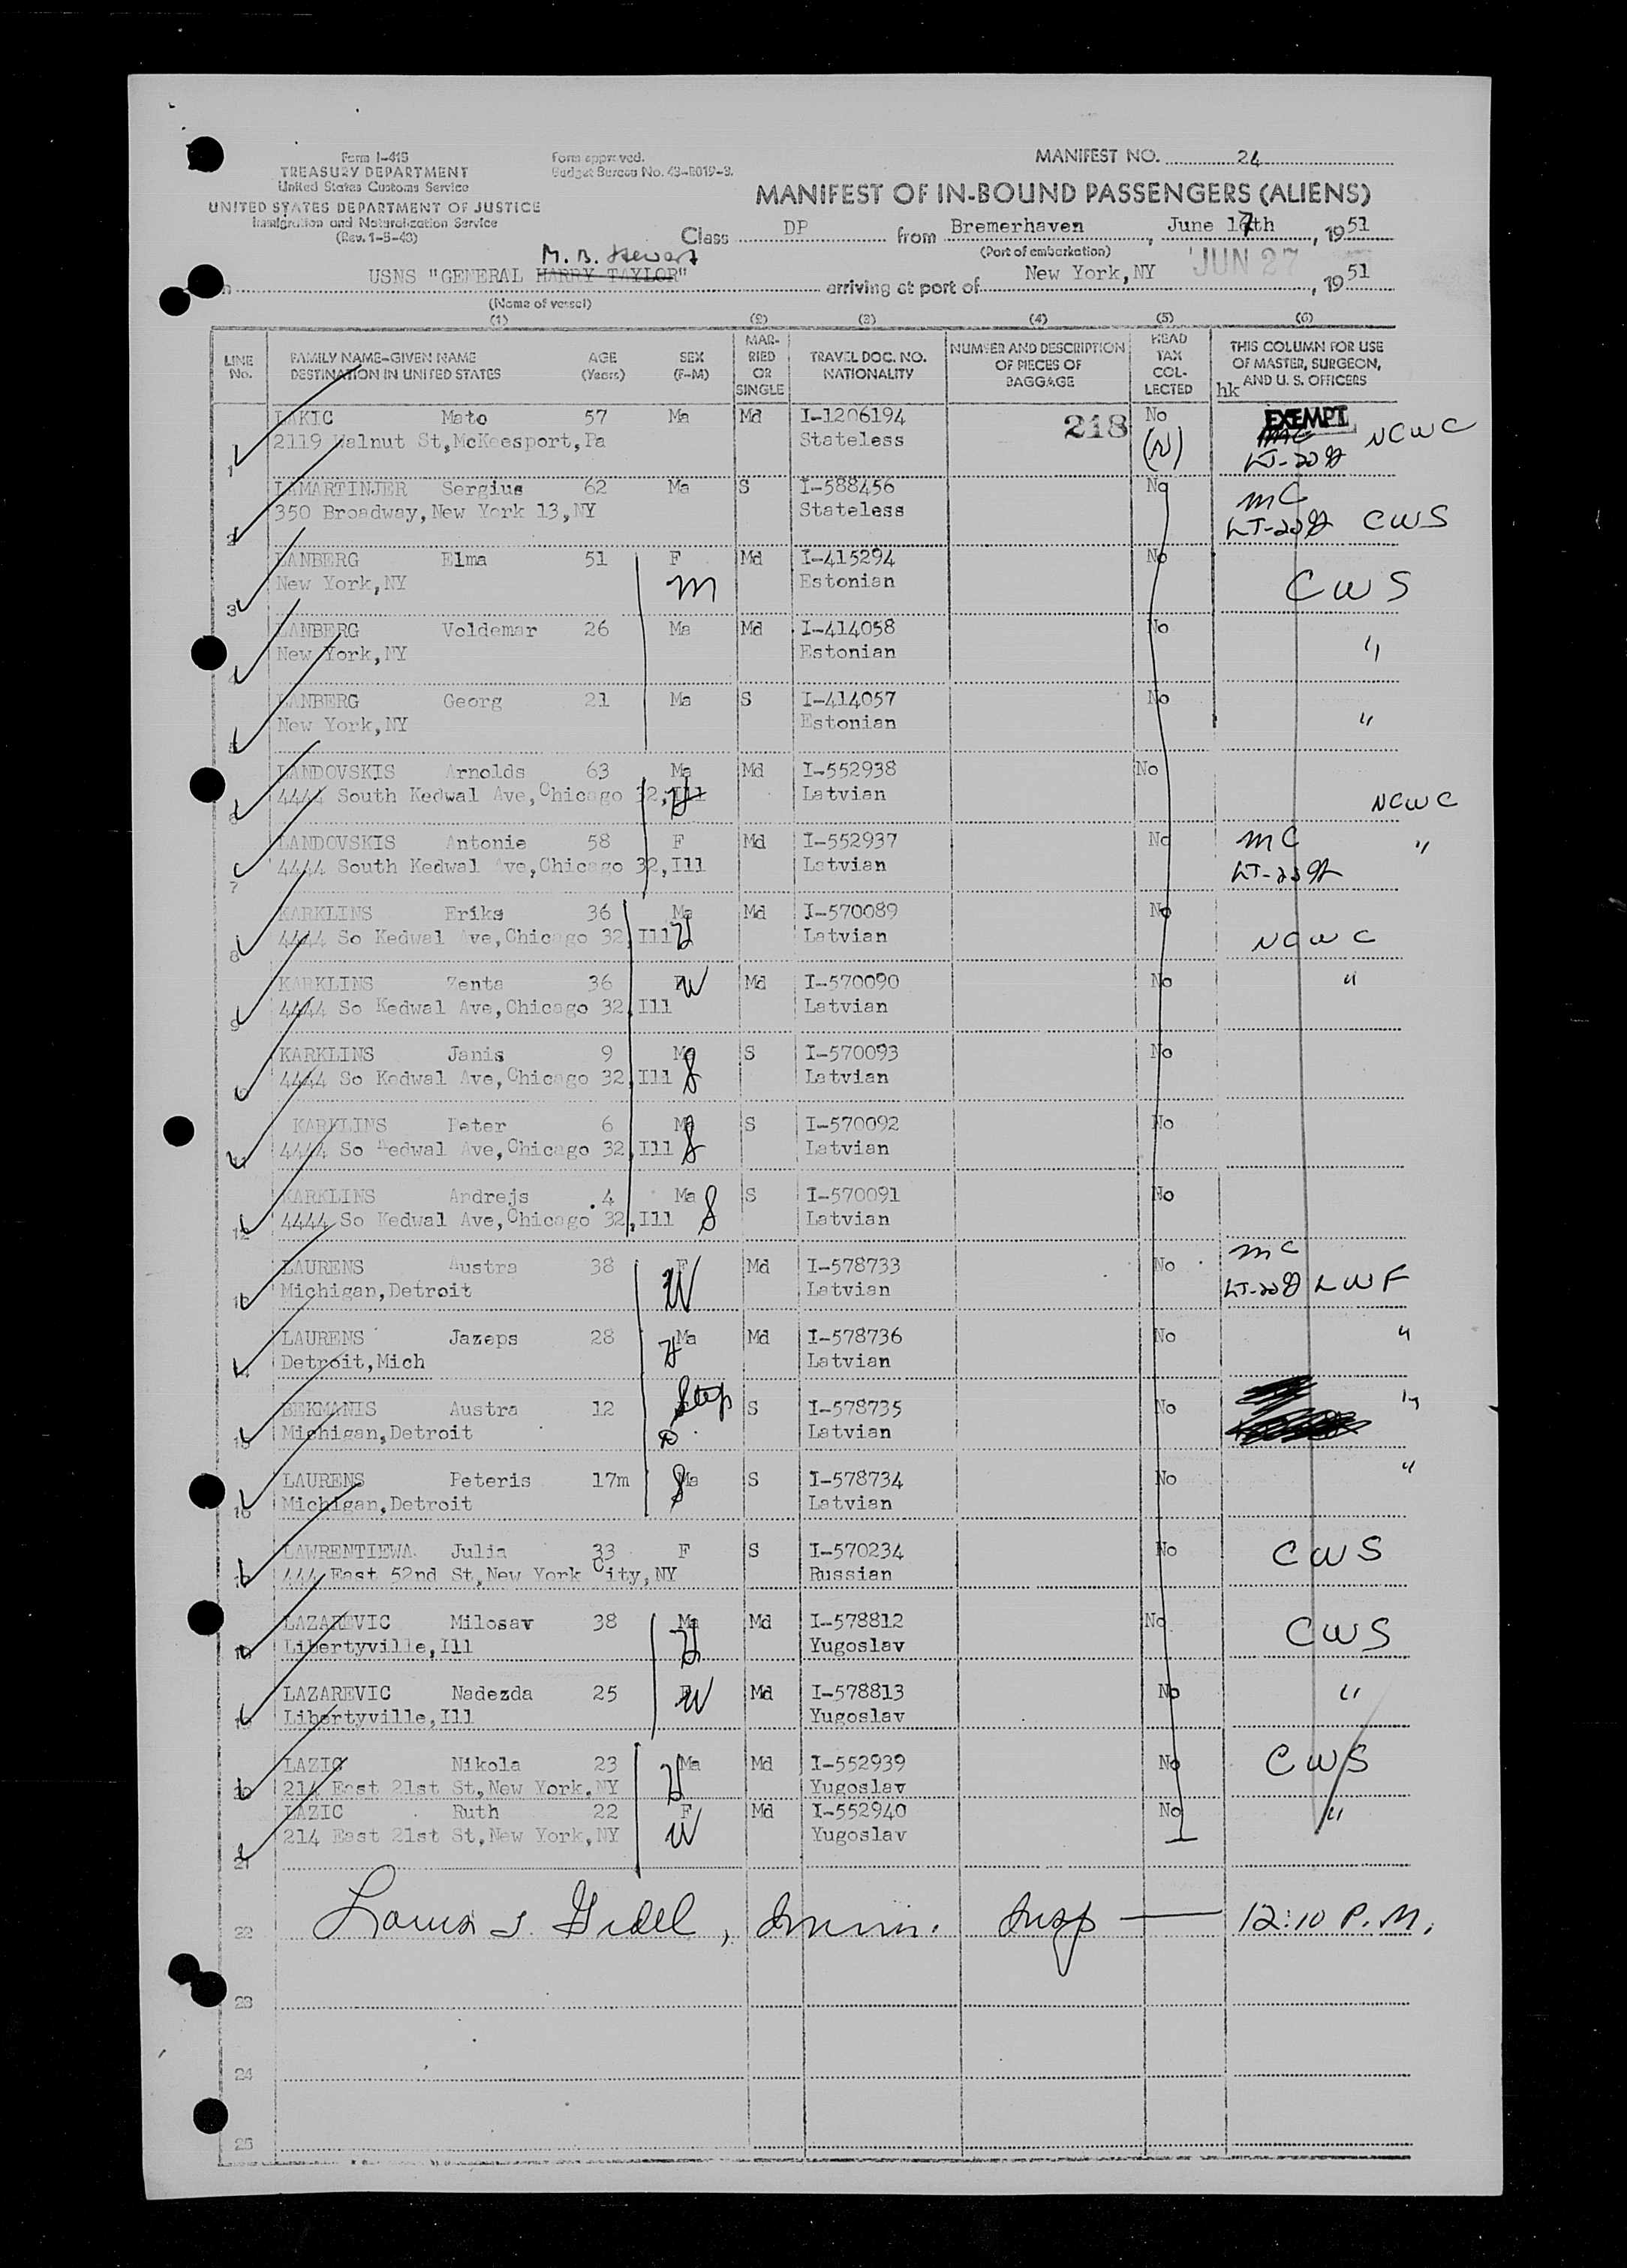 Form I-415
TREASURY DEPARTMENT
United States Customs Service
UNITED STATES DEPARTMENT OF JUSTICE
Immigration and Naturalization Service
(Rev. 1-5-43)
Form approved.
Budget Bureau No. 43-R019-3.
MANIFEST NO. 24
MANIFEST OF IN-BOUND PASSENGERS (ALIENS)
Class DP from Bremerhaven, June 17th, 1951
(Port of embarkation)
M. B. Stewart
USNS "GENERAL HARRY TAYLOR" arriving at port of New York,NY JUN 27, 1951
(Name of vessel)
(1) (2) (3) (4) (5) (6)
LINE No. FAMILY NAME-GIVEN NAME DESTINATION IN UNITED STATES AGE (Years) SEX (F-M) MAR-RIED OR SINGLE TRAVEL DOC. NO. NATIONALITY NUMBER AND DESCRIPTION OF PIECES OF BAGGAGE HEAD TAX COL-LECTED THIS COLUMN FOR USE OF MASTER, SURGEON, AND U. S. OFFICERS hk
LAKIC Mato 57 Ma Md I-1206194 218 No EXEMPT
1 2119 Walnut St,McKeesport,Pa Stateless (N) NCWC
LAMARTINJER Sergius 62 Ma S I-588456 No MC
2 350 Broadway,New York 13,NY Stateless CWS
LANBERG Elma 51 F Md I-415294 No
3 New York,NY m Estonian CWS
LANBERG Voldemar 26 Ma Md I-414058 No
4 New York,NY Estonian "
LANBERG Georg 21 Ma S I-414057 No
5 New York,NY Estonian "
LANDOVSKIS Arnolds 63 Ma Md I-552938 No
6 4444 South Kedwal Ave,Chicago 32,Ill Latvian NCWC
LANDOVSKIS Antonie 58 F Md I-552937 No MC "
7 4444 South Kedwal Ave,Chicago 32,Ill Latvian
KARKLINS Eriks 36 Ma Md I-570089 No
8 4444 So Kedwal Ave,Chicago 32,Ill Latvian NCWC
KARKLINS Zenta 36 W Md I-570090 No "
9 4444 So Kedwal Ave,Chicago 32,Ill Latvian
KARKLINS Janis 9 Ma S I-570093 No
10 4444 So Kedwal Ave,Chicago 32,Ill Latvian
KARKLINS Peter 6 Ma S I-570092 No
11 4444 So Kedwal Ave,Chicago 32,Ill Latvian
KARKLINS Andrejs 4 Ma S I-570091 No
12 4444 So Kedwal Ave,Chicago 32,Ill Latvian
LAURENS Austra 38 F Md I-578733 No MC
13 Michigan,Detroit W Latvian LWF
LAURENS Jazeps 28 Ma Md I-578736 No "
14 Detroit,Mich Latvian
BEKMANIS Austra 12 Step S I-578735 No "
15 Michigan,Detroit D Latvian
LAURENS Peteris 17m Ma S I-578734 No "
16 Michigan,Detroit Latvian
LAWRENTIEWA Julia 33 F S I-570234 No CWS
17 444 East 52nd St,New York City,NY Russian
LAZAREVIC Milosav 38 Ma Md I-578812 No CWS
18 Libertyville,Ill Yugoslav
LAZAREVIC Nadezda 25 W Md I-578813 No "
19 Libertyville,Ill Yugoslav
LAZIC Nikola 23 Ma Md I-552939 No CWS
20 214 East 21st St,New York,NY Yugoslav
LAZIC Ruth 22 F Md I-552940 No "
214 East 21st St,New York,NY W Yugoslav
21
22 Immin. Insp — 12:10 P.M.
23
24
25